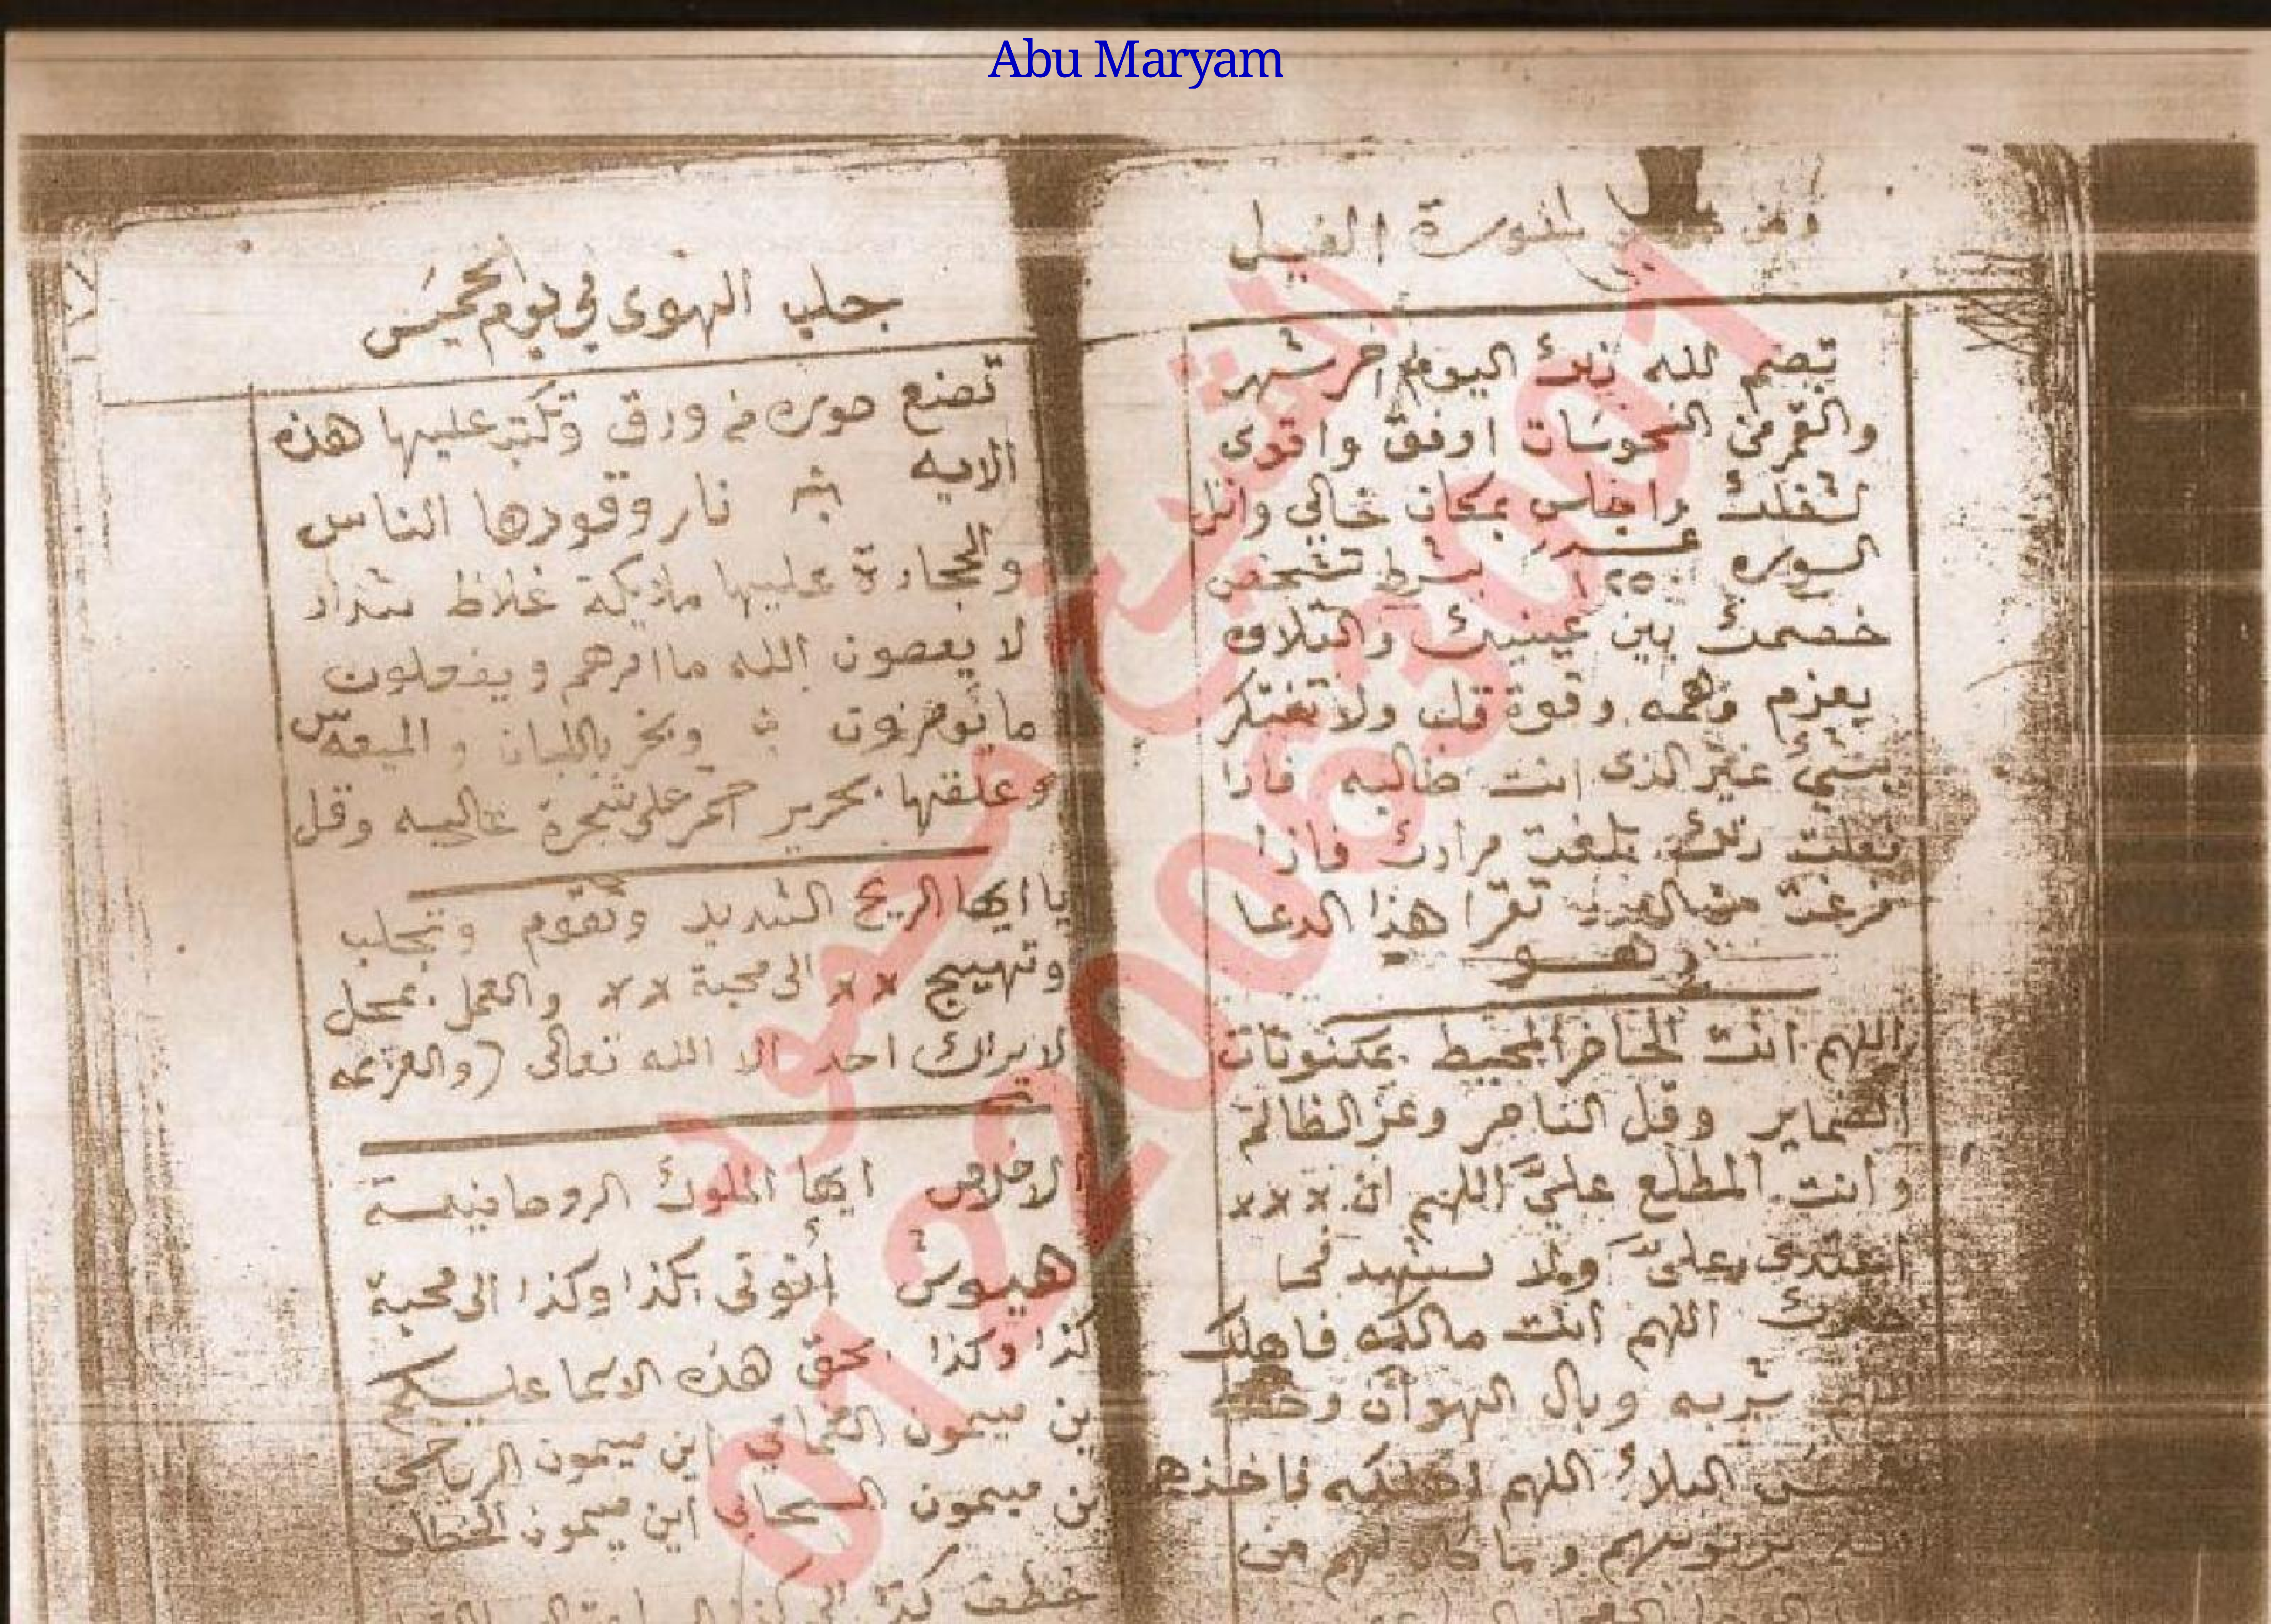 Abu Maryam
لسورة الفيل
تصم لله ذلك اليوم اخر شهر
والقمر في النحوسات اوفق واقوى
لشغلك واجلس بمكان خالي واتل
السوره ١٢٥٠ بشرط تشخص
خصمك بين عينيك والتلاوه
بعزم وهمه وقوة قلب ولا تفتكر
بشيئ غير الذى انت طالبه فاذا
فعلت ذلك بلغت مرادك فاذا
فرغت من العدد تقرا هذا الدعا
وهو
اللهم انت الحاضر المحيط بمكنونات
الضماير وقل الناصر وعز الظالم
وانت المطلع عليّ اللهم ان ×××
اعتدى علىّ ولا
اللهم انت مالكه فاهلك
اللهم سربه وبال الهوان
البلاء اللهم
وما كان لهم من
جلب الهوى في يوم الخميس
تصنع صوره من ورق وتكتب عليها هذه
الايه نار وقودها الناس
والحجارة عليها ملايكة غلاظ شداد
لا يعصون الله ما امرهم ويفعلون
ما يؤمرون وبخر باللبان والميعه س
وعلقها بحرير احمر على شجرة عاليه وقل
يا ايها الريح الشديد وتقوم وتجلب
وتهييج ×× الى محبة ×× والعمل بمحل
لا يراك احد الا الله تعالى (والعزيمه
الاخلاص ايها الملوك الروحانيه
هيوش أتوني بكذا وكذا الى محبة
كذا وكذا بحق هذه الاسما عليكم
ين ميمون الغماني اين ميمون الرياحي
ين ميمون السحابي اين ميمون الخطاف
خطف
الشيخ محمود
01220063001